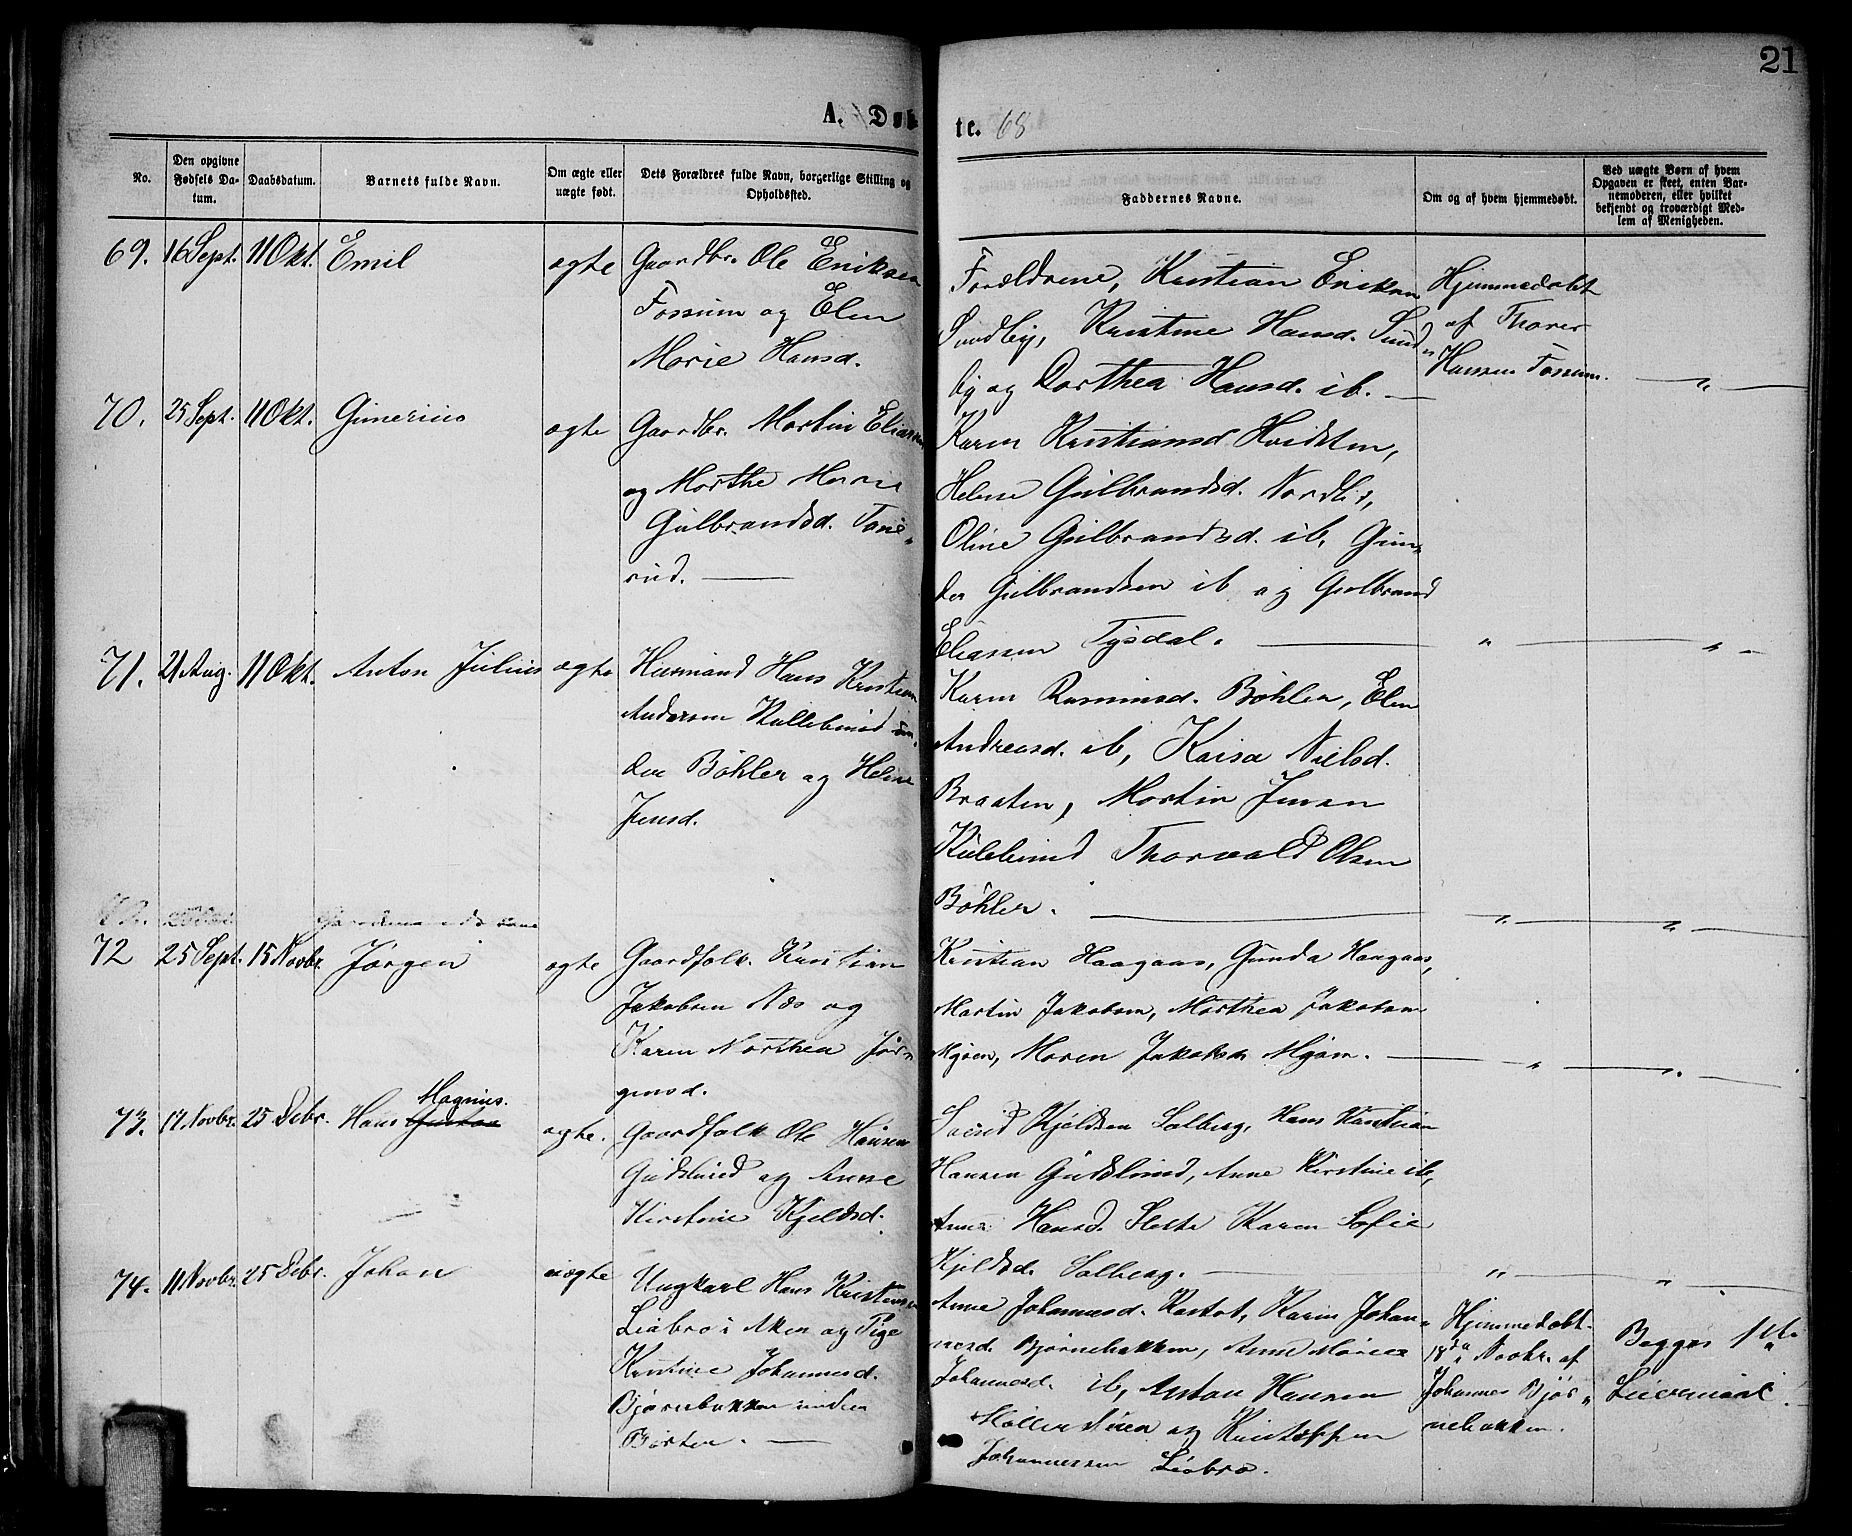 21
A. Døb-
te. 68
No.
Den opgivne Fødsels Da-tum.
Daabsdatum.
Barnets fulde Navn.
Om ægte eller uægte født.
Dets Forældres fulde Navn, borgerlige Stilling og Opholdssted.
Faddernes Navne.
Om og af hvem hjemmedøbt.
Ved uægte Børn af hvem Opgaven er skeet, enten Bar-nemoderen, eller hvilket bekjendt og troværdigt Med-lem af Menigheden.
69. 16 Sept. 11 Okt. Emil ægte Gaardbr. Ole Eriksen
Fossum og Elen
Marie Hansd.
Forældrene, Kristian Eriksen
Sundby, Kristine Hansd. Sund
by og Dorthea Hansd. ib. —
Hjemmedøbt
af Thorer
Hansen Fossum. — „ —
70. 25 Sept. 11 Okt. Gunerius ægte Gaardbr. Martin Eliasen
og Marthe Marie
Gulbrandsd. Tane„
rud. —
Karen Kristiansd. Hvidsten,
Helene Gulbrandsd. Nordli,
Oline Gulbrandsd. ib, Gun„
der Gulbrandsen ib og Gulbrand
Eliassen Tysdal. — „ — „ —
71. 21 Aug. 11 Okt. Anton Julius ægte Husmand Hans Kristian
Andersen Kullebund un„
der Bøhler og Helene
Jensd.
Karen Rasmusd. Bøhler, Elen
Andreasd. ib, Kaisa Nielsd.
Braaten, Martin Jensen
Kulebund Thorvald Olsen
Bøhler. — „ — „ —
72 25 Sept. 15 Novbr. Jørgen ægte Gaardfolk. Kristian
Jakobsen Næs og
Karen Marthea Jør„
gensd.
Kristian Haagaas, Gunda Haagaas,
Martin Jakobsen, Marthea Jakobsen
Mjøen, Maren Jakobsd. Mjøen. — „ — „ —
73. 17 Novbr. 25 Debr. Hans Gustav Magnus. ægte. Gaardfolk Ole Hansen
Gudslund og Anne
Kirstine Kjeldsd.
Kjeldsen Solberg, Hans Kristian
Hansen Gudslund, Anne Kirstine ib,
Anne Hansd. Karen Sofie
Kjeldsd. Solberg. — „ — „ —
74. 11 Novbr. 25 Debr. Johan uægte Ungkarl Hans Kristiansen
Liabro i Aken og Pige
Kristine Johannesd.
Bjørnebakken under
Børter. —
Anne Johannesd. Karen Johan„
nesd. Bjørnebakken, Anne Marie
Johannesd. ib, Anton Hansen
Møller og Kristoffer
Johannessen Liabro.
Hjemmedøbt
18de Novbr. af
Johannes Bjør„
nebakken.
Begges 1ste
Leiermaal.